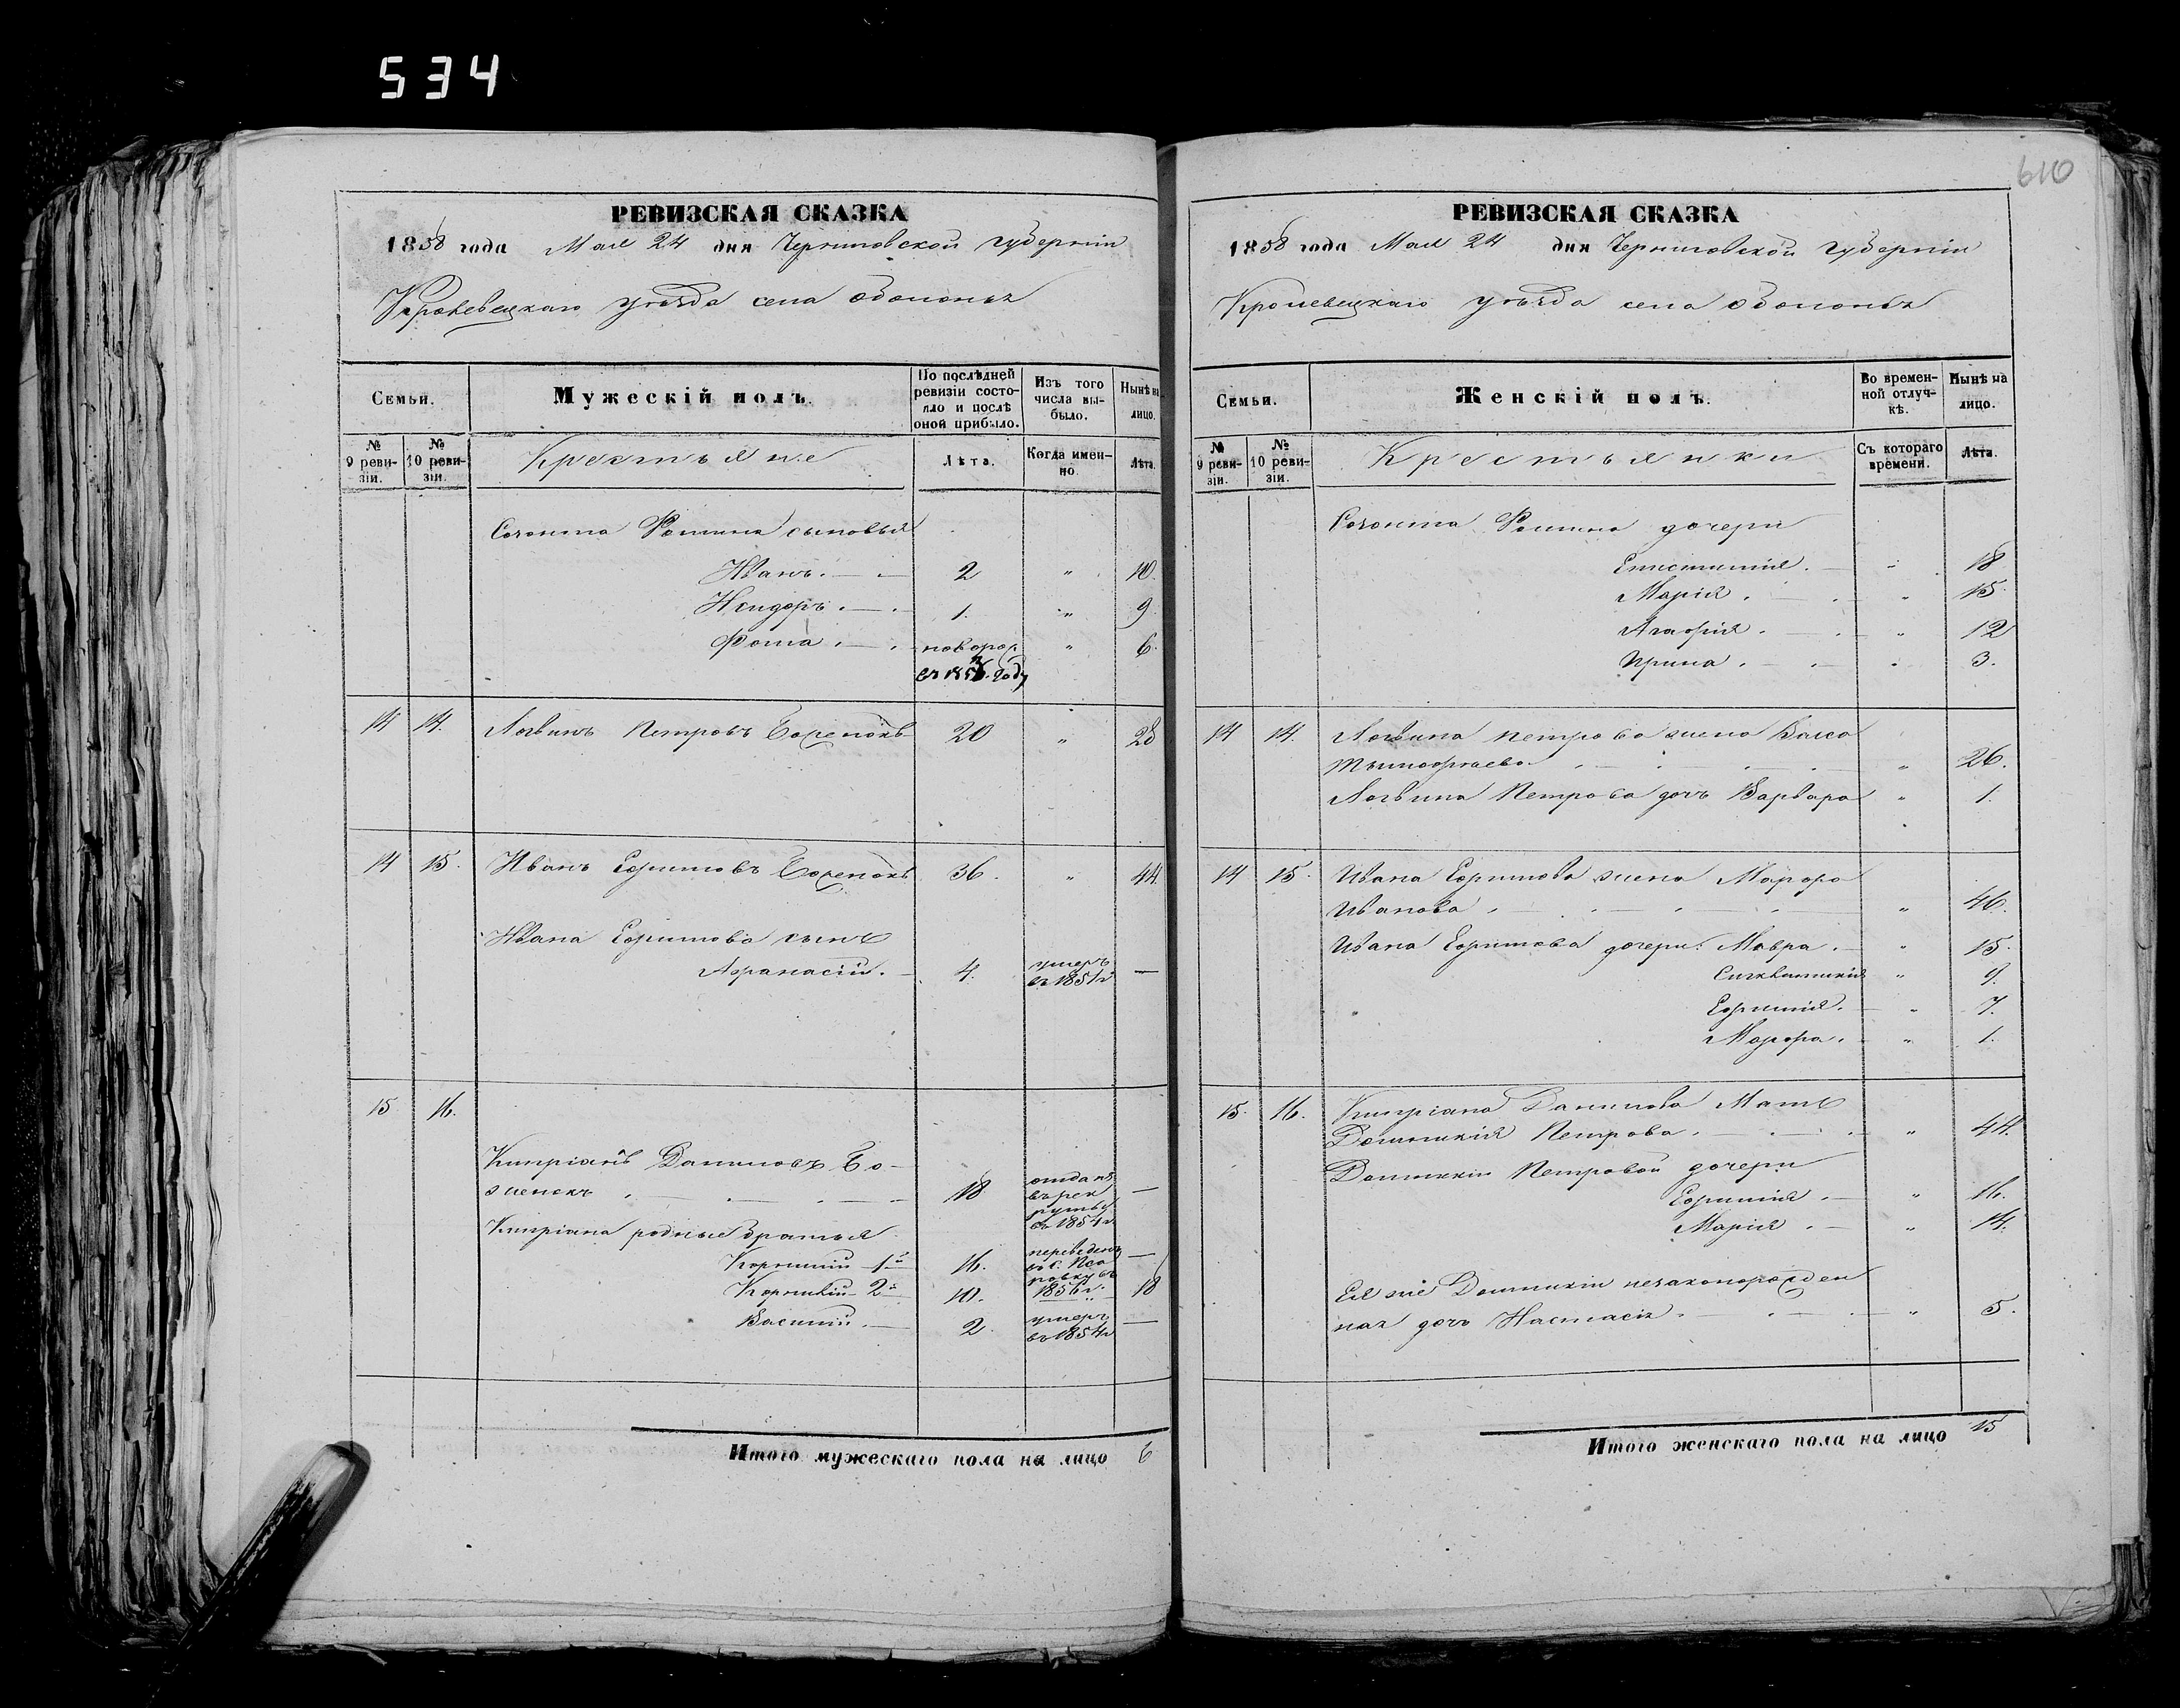 534
610
РЕВИЗСКАЯ СКАЗКА
1858 года Мая 24 дня Черниговской губерніи
Кролевецкаго уѣзда села Оболонья
Семьи.
Мужескій полъ.
По послѣдней ревизіи состояло и послѣ оной прибыло.
Изъ того числа выбыло.
Нынѣ на лицо.
№ 9 ревизіи.
№ 10 ревизіи.
Крестьяне
Лѣта.
Когда именно.
Лѣта.
Созонта Фомина сыновья
Иванъ. 2 " 10.
Исидоръ. 1. " 9.
Фома. новорож. " 6.
въ 1852 году
14 14. Логвинъ Петровъ 20 " 28
14 15. Иванъ Ефимовъ 36. " 44.
Ивана Ефимова сынъ
Афанасій. 4. умеръ въ 1851 г —
15 16.
Кипріанъ Даниловъ Бо-
женокъ 18 отданъ въ рекруты въ 1854 г. —
Кипріана родные братья
Корнилій 1й 16. переведенъ въ 1856 г. —
Корнилій 2й 10. " 18
Василій. 2. умеръ въ 1854 г —
Итого мужескаго пола на лицо 6
РЕВИЗСКАЯ СКАЗКА
1858 года Мая 24 дня Черниговской губерніи
Кролевецкаго уѣзда села Оболонья
Семьи.
Женскій полъ.
Во временной отлучкѣ.
Нынѣ на лицо.
№ 9 ревизіи.
№ 10 ревизіи.
Крестьянки
Съ котораго времени.
Лѣта.
Созонта Фомина дочери
Епистимія. " 18
Марія. " 15.
Агафія. " 12
Ирина. " 3.
14 14. Логвина Петрова жена Васса
Тимофеева " 26.
Логвина Петрова дочь Варвара " 1.
14 15. Ивана Ефимова жена Марфа
Иванова " 46.
Ивана Ефимова дочери: Мавра. " 15.
" 9.
Ефимія. " 7.
Марфа. " 1.
15. 16. Кипріана Данилова Мать
Домникія Петрова. " 44.
Домникіи Петровой дочери
Ефимія. " 16.
Марія. " 14.
Ея же Домникіи незаконорожден
ная дочь Настасія. " 5.
Итого женскаго пола на лицо 15